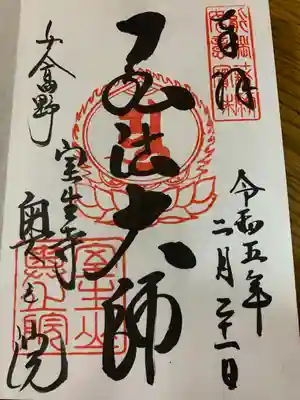 奉拝
令和五年
二月二十一日
弘法大師
女人高野
室生寺
奥之院